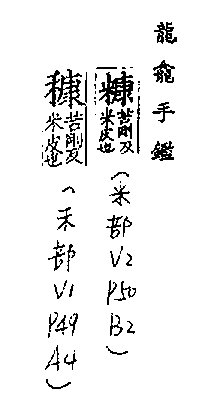 龍龕手鑑
糠苦剛反米皮也
(米部V2P50B2)
穅苦剛反米皮也
(禾部V1P49A4)